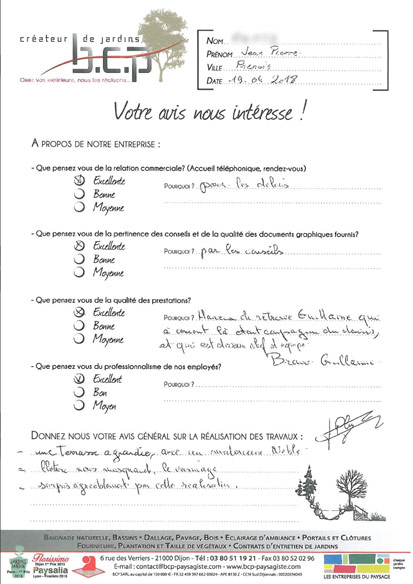 créateur de jardins
b.c.p
Osez vos extérieurs, nous les réalisons...
NOM
PRÉNOM Jean Pierre
VILLE
DATE 19.04 2018
Votre avis nous intéresse !
A PROPOS DE NOTRE ENTREPRISE :
- Que pensez vous de la relation commerciale? (Accueil téléphonique, rendez-vous)
Excellente
POURQUOI ? pour les délais
Bonne
Moyenne
- Que pensez vous de la pertinence des conseils et de la qualité des documents graphiques fournis?
Excellente
POURQUOI ? par les conseils
Bonne
Moyenne
- Que pensez vous de la qualité des prestations?
Excellente
POURQUOI ? de retrouver Guillaume qui
Bonne
à
Moyenne
et qui est chef d'équipe
Bravo Guillaume
- Que pensez vous du professionnalisme de nos employés?
Excellent
POURQUOI ?
Bon
Moyen
DONNEZ NOUS VOTRE AVIS GÉNÉRAL SUR LA RÉALISATION DES TRAVAUX :
- une Terrasse agrandie, avec un matériaux Noble
- Clôture nous masquant le voisinage
- surpris agréablement par cette réalisation
BAIGNADE NATURELLE, BASSINS • DALLAGE, PAVAGE, BOIS • ECLAIRAGE D'AMBIANCE • PORTAILS ET CLÔTURES
FOURNITURE, PLANTATION ET TAILLE DE VÉGÉTAUX • CONTRATS D'ENTRETIEN DE JARDINS
Florissimo
Dijon 1er Prix 2010
Paysalia
6 rue des Verriers - 21000 Dijon • Tél : 03 80 51 19 21 - Fax 03 80 52 02 96
E-mail : contact@bcp-paysagiste.com - www.bcp-paysagiste.com
LES ENTREPRISES DU PAYSAGE